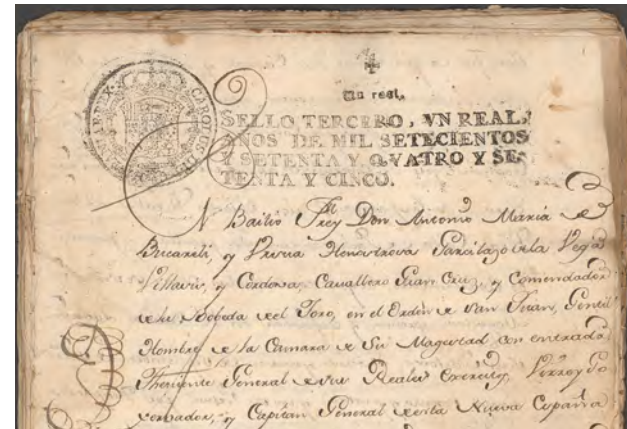 CAROLUS III
Un real.
SELLO TERCERO, VN REAL,
AÑOS DE MIL SETECIENTOS
Y SETENTA Y QVATRO Y SE-
TENTA Y CINCO.
Bailio Frey Don Antonio Maria de
Bucareli, y Ursua Henestrova Garcilazo de la Vega
Villacis, y Cordova, Cavallero Gran Cruz, y Comendador
de la Bobeda del Toro, en el Orden de San Juan, Gentil
Hombre de la Camara de Su Magestad con entrada
Theniente General de sus Reales Exercitos, Virrey Go
vernador, y Capitan General de esta Nueva España